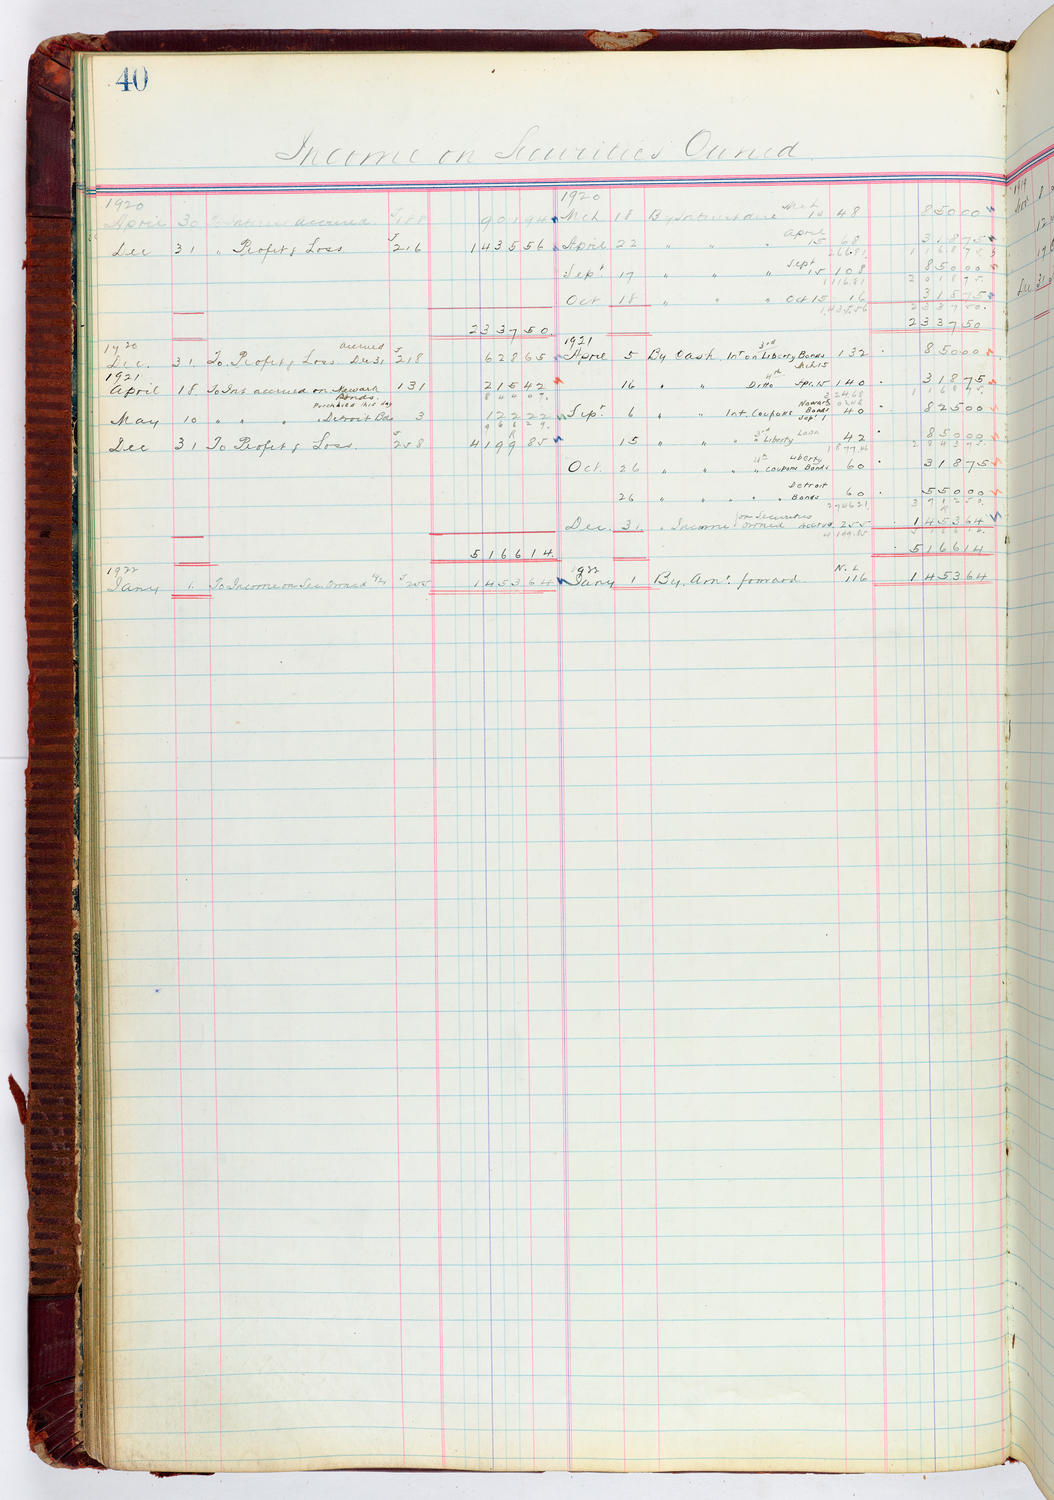 40
Income on Securities Owned
1920
April 30 To Interest accrued J 188 901 94
Dec 31 " Profit & Loss J 216 1435 56
2337 50
1920
Dec. 31. To Profit & Loss accrued Dec 31 J 218 628 65
1921
April 18 To Int accrued on Newark Bonds Purchased this day 131 215 42
844 07
May 10 " " " " Detroit Bds 3 122 22
966 29
Dec 31 To Profit & Loss J 258 4199 85
5166 14
1922
Jany 1. To Income on Sec Owned J 255 1453 64
1920
Mch 18 By Interest Mch 15 48 850 00
April 22 " " " April 15 68 318 75
266.81 1168 75
Sept 17 " " " Sept 15 108 850 00
1116.81 2018 75
Oct 18 " " " Oct 15 16 318 75
1,435.56 2337 50
2337 50
1921
April 5 By Cash Int on 3rd Liberty Bonds Mch 15 132 850 00
16 " " 4th Ditto Apr. 15 140 318 75
324.68 1168 75
Sept 6 " " Int. Coupons Newark Bonds Sept 1 40 825 00
15 " " " 3rd Liberty Loan 42 850 00
1877.46 2843 75
Oct. 26 " " " 4th Liberty Coupons Bonds 60 318 75
26 " " " " Detroit Bonds 60 550 00
2746.21 3712 50
Dec. 31. " Income on Securities Owned 255 1453 64
4199.85 5166 14
5166 14
1922
Jany 1 By Amt. forward N.L. 116 1453 64
1919